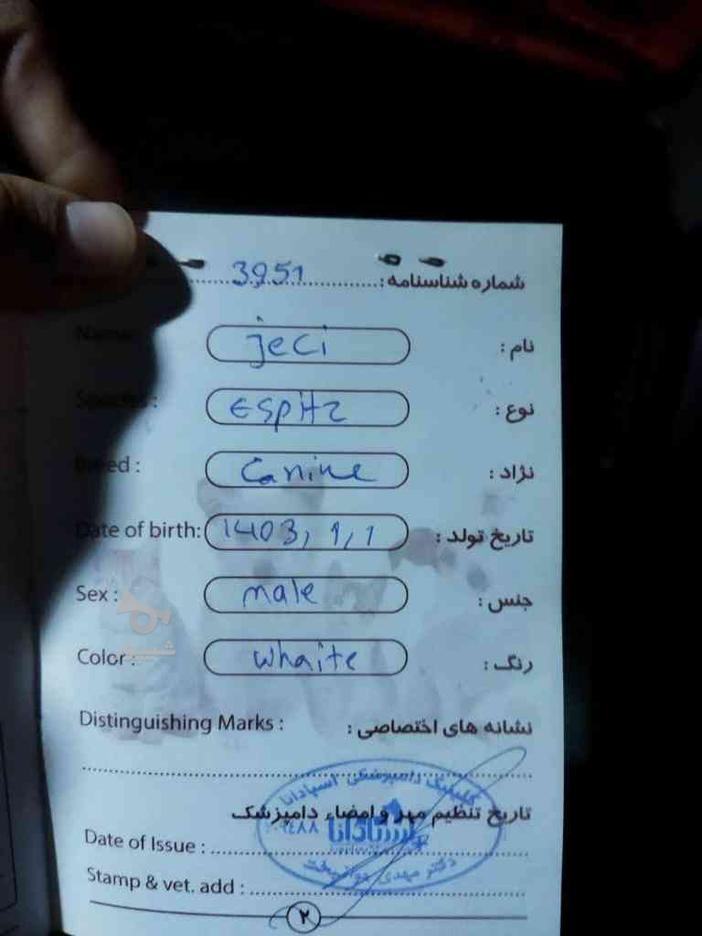 شماره شناسنامه : 3951
Name : jeci نام :
: Espitz نوع :
Breed : Canine نژاد :
Date of birth: 1403, 1, 1 تاریخ تولد :
Sex : male جنس :
Color : whaite رنگ :
Distinguishing Marks : نشانه های اختصاصی :
تاریخ تنظیم مهر و امضاء دامپزشک
Date of Issue :
Stamp & vet. add :
کلینیک دامپزشکی اسپادانا
اسپادانا
دکتر مهدی
۲